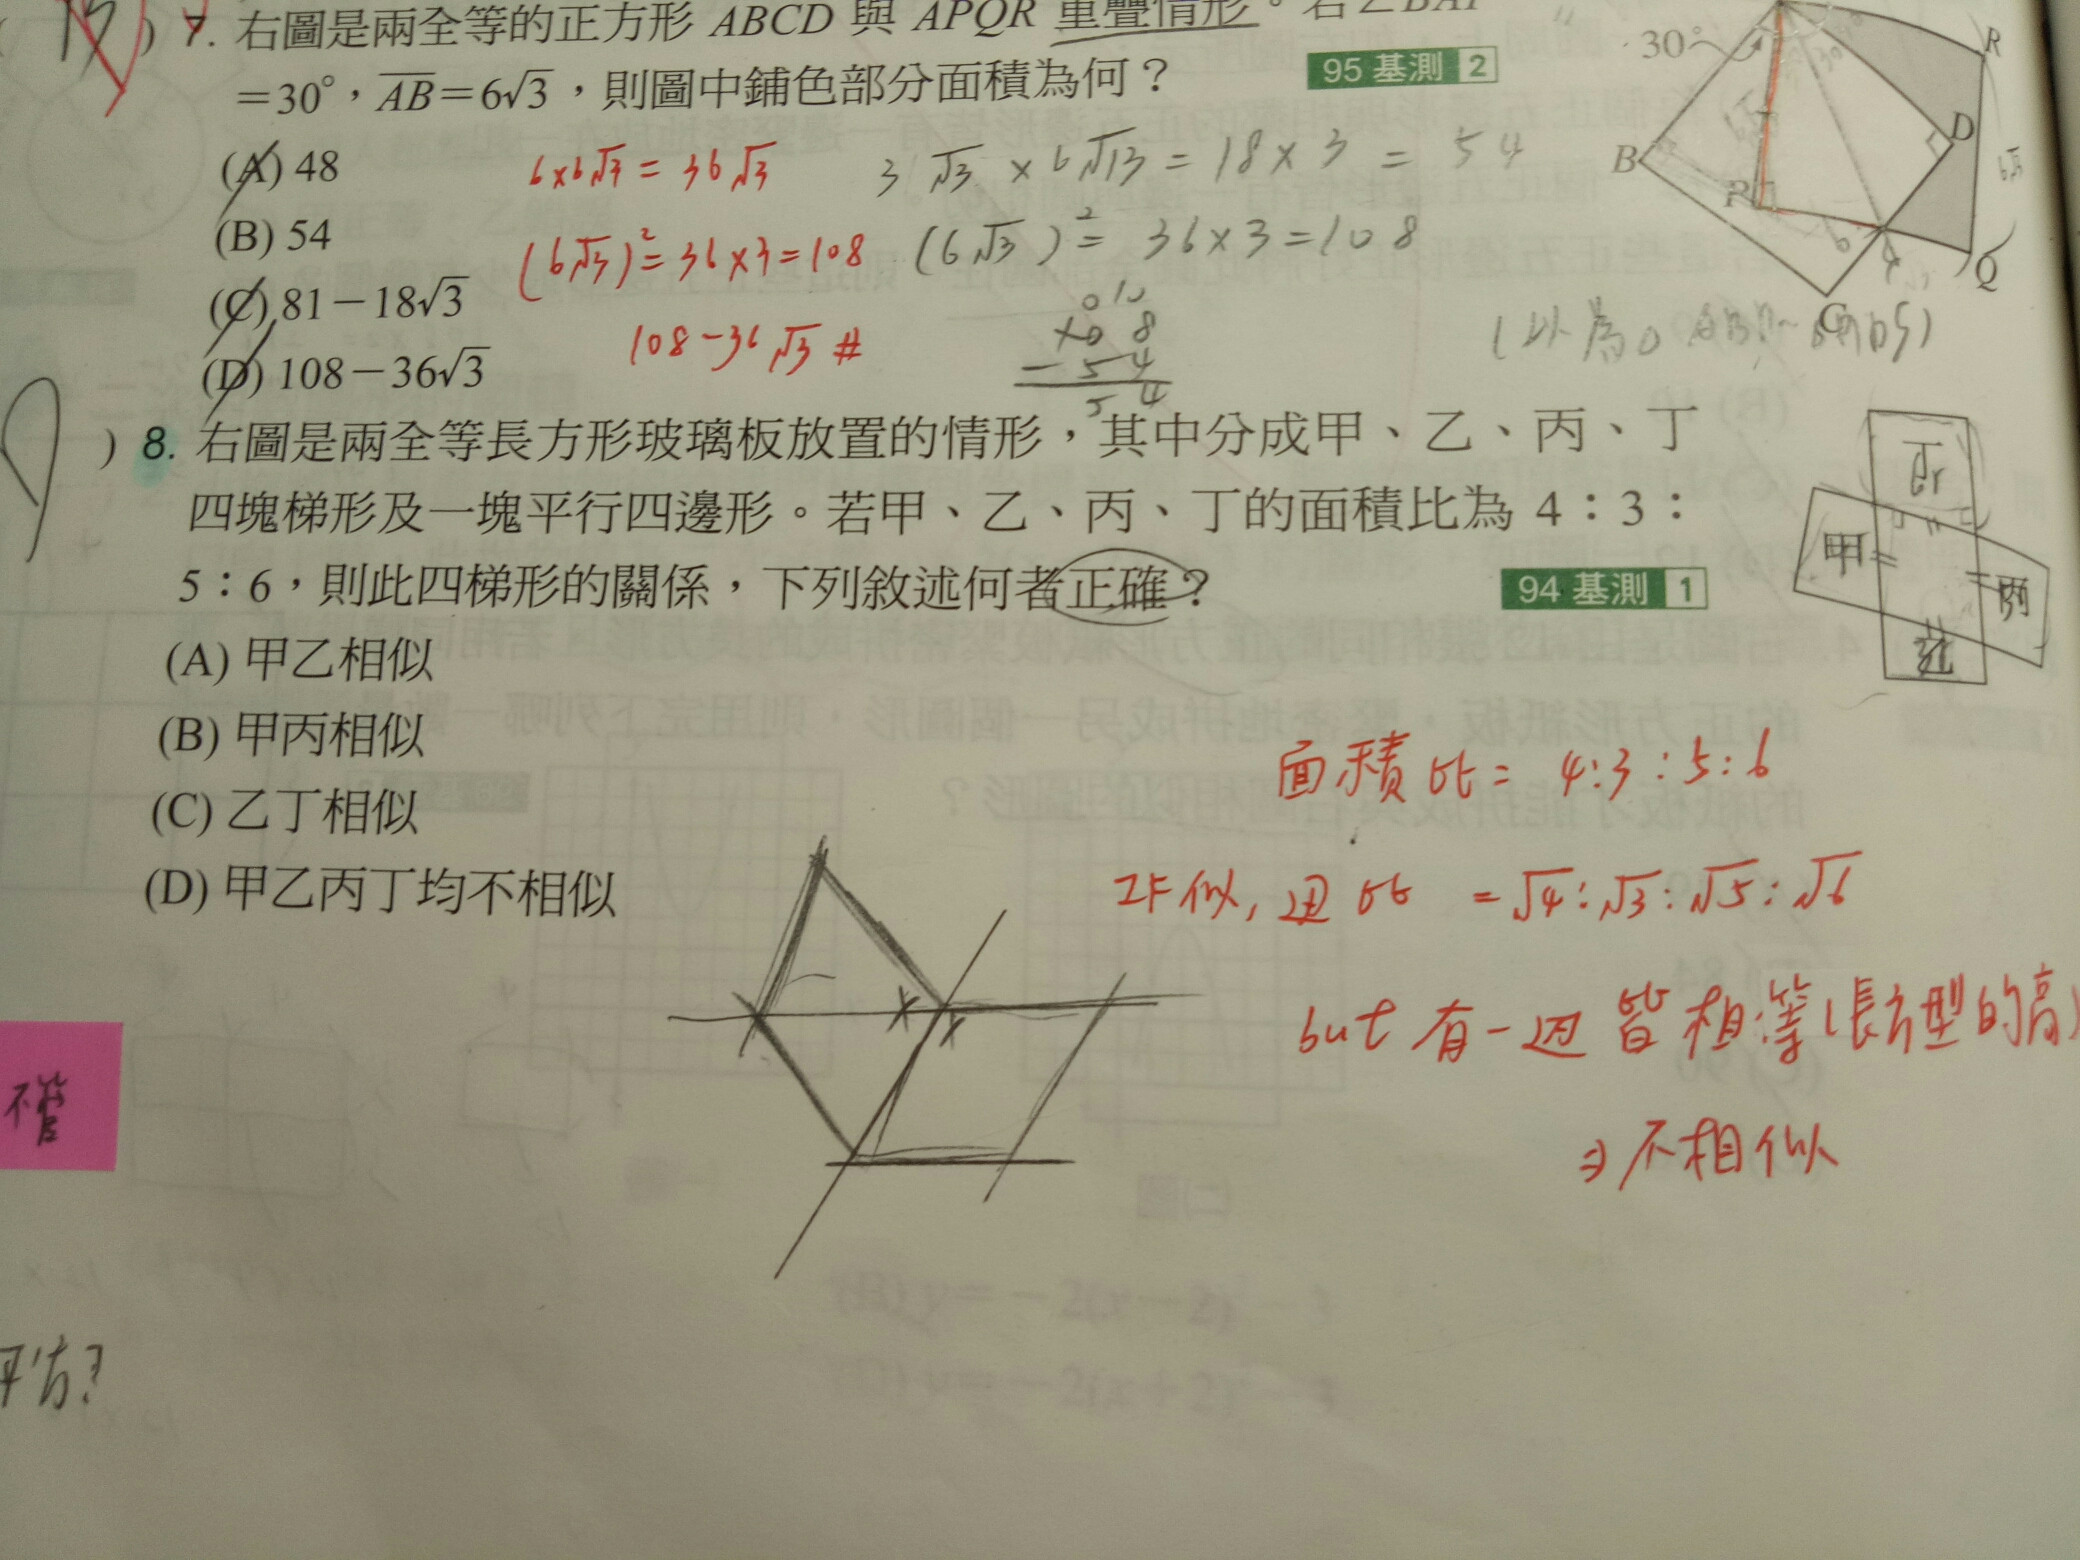 7. 右圖是兩全等的正方形 ABCD 與 APQR 重疊情形。若∠BAP
=30°，AB=6√3，則圖中鋪色部分面積為何？
95 基測 2
(A) 48
(B) 54
(C) 81−18√3
(D) 108−36√3
6×6√3=36√3
(6√3)²=36×3=108
108−36√3 #
3√3×6√13=18×3=54
(6√3)²=36×3=108
−54
54
30°
30°
B
P
R
D
Q
C
6√3
6
8. 右圖是兩全等長方形玻璃板放置的情形，其中分成甲、乙、丙、丁
四塊梯形及一塊平行四邊形。若甲、乙、丙、丁的面積比為 4：3：
5：6，則此四梯形的關係，下列敘述何者正確？
94 基測 1
(A) 甲乙相似
(B) 甲丙相似
(C) 乙丁相似
(D) 甲乙丙丁均不相似
甲
面積比= 4:3:5:6
=√4:√3:√5:√6
but 有一边皆相等(長方型的高)
⇒不相似
x
x
不管
平方?